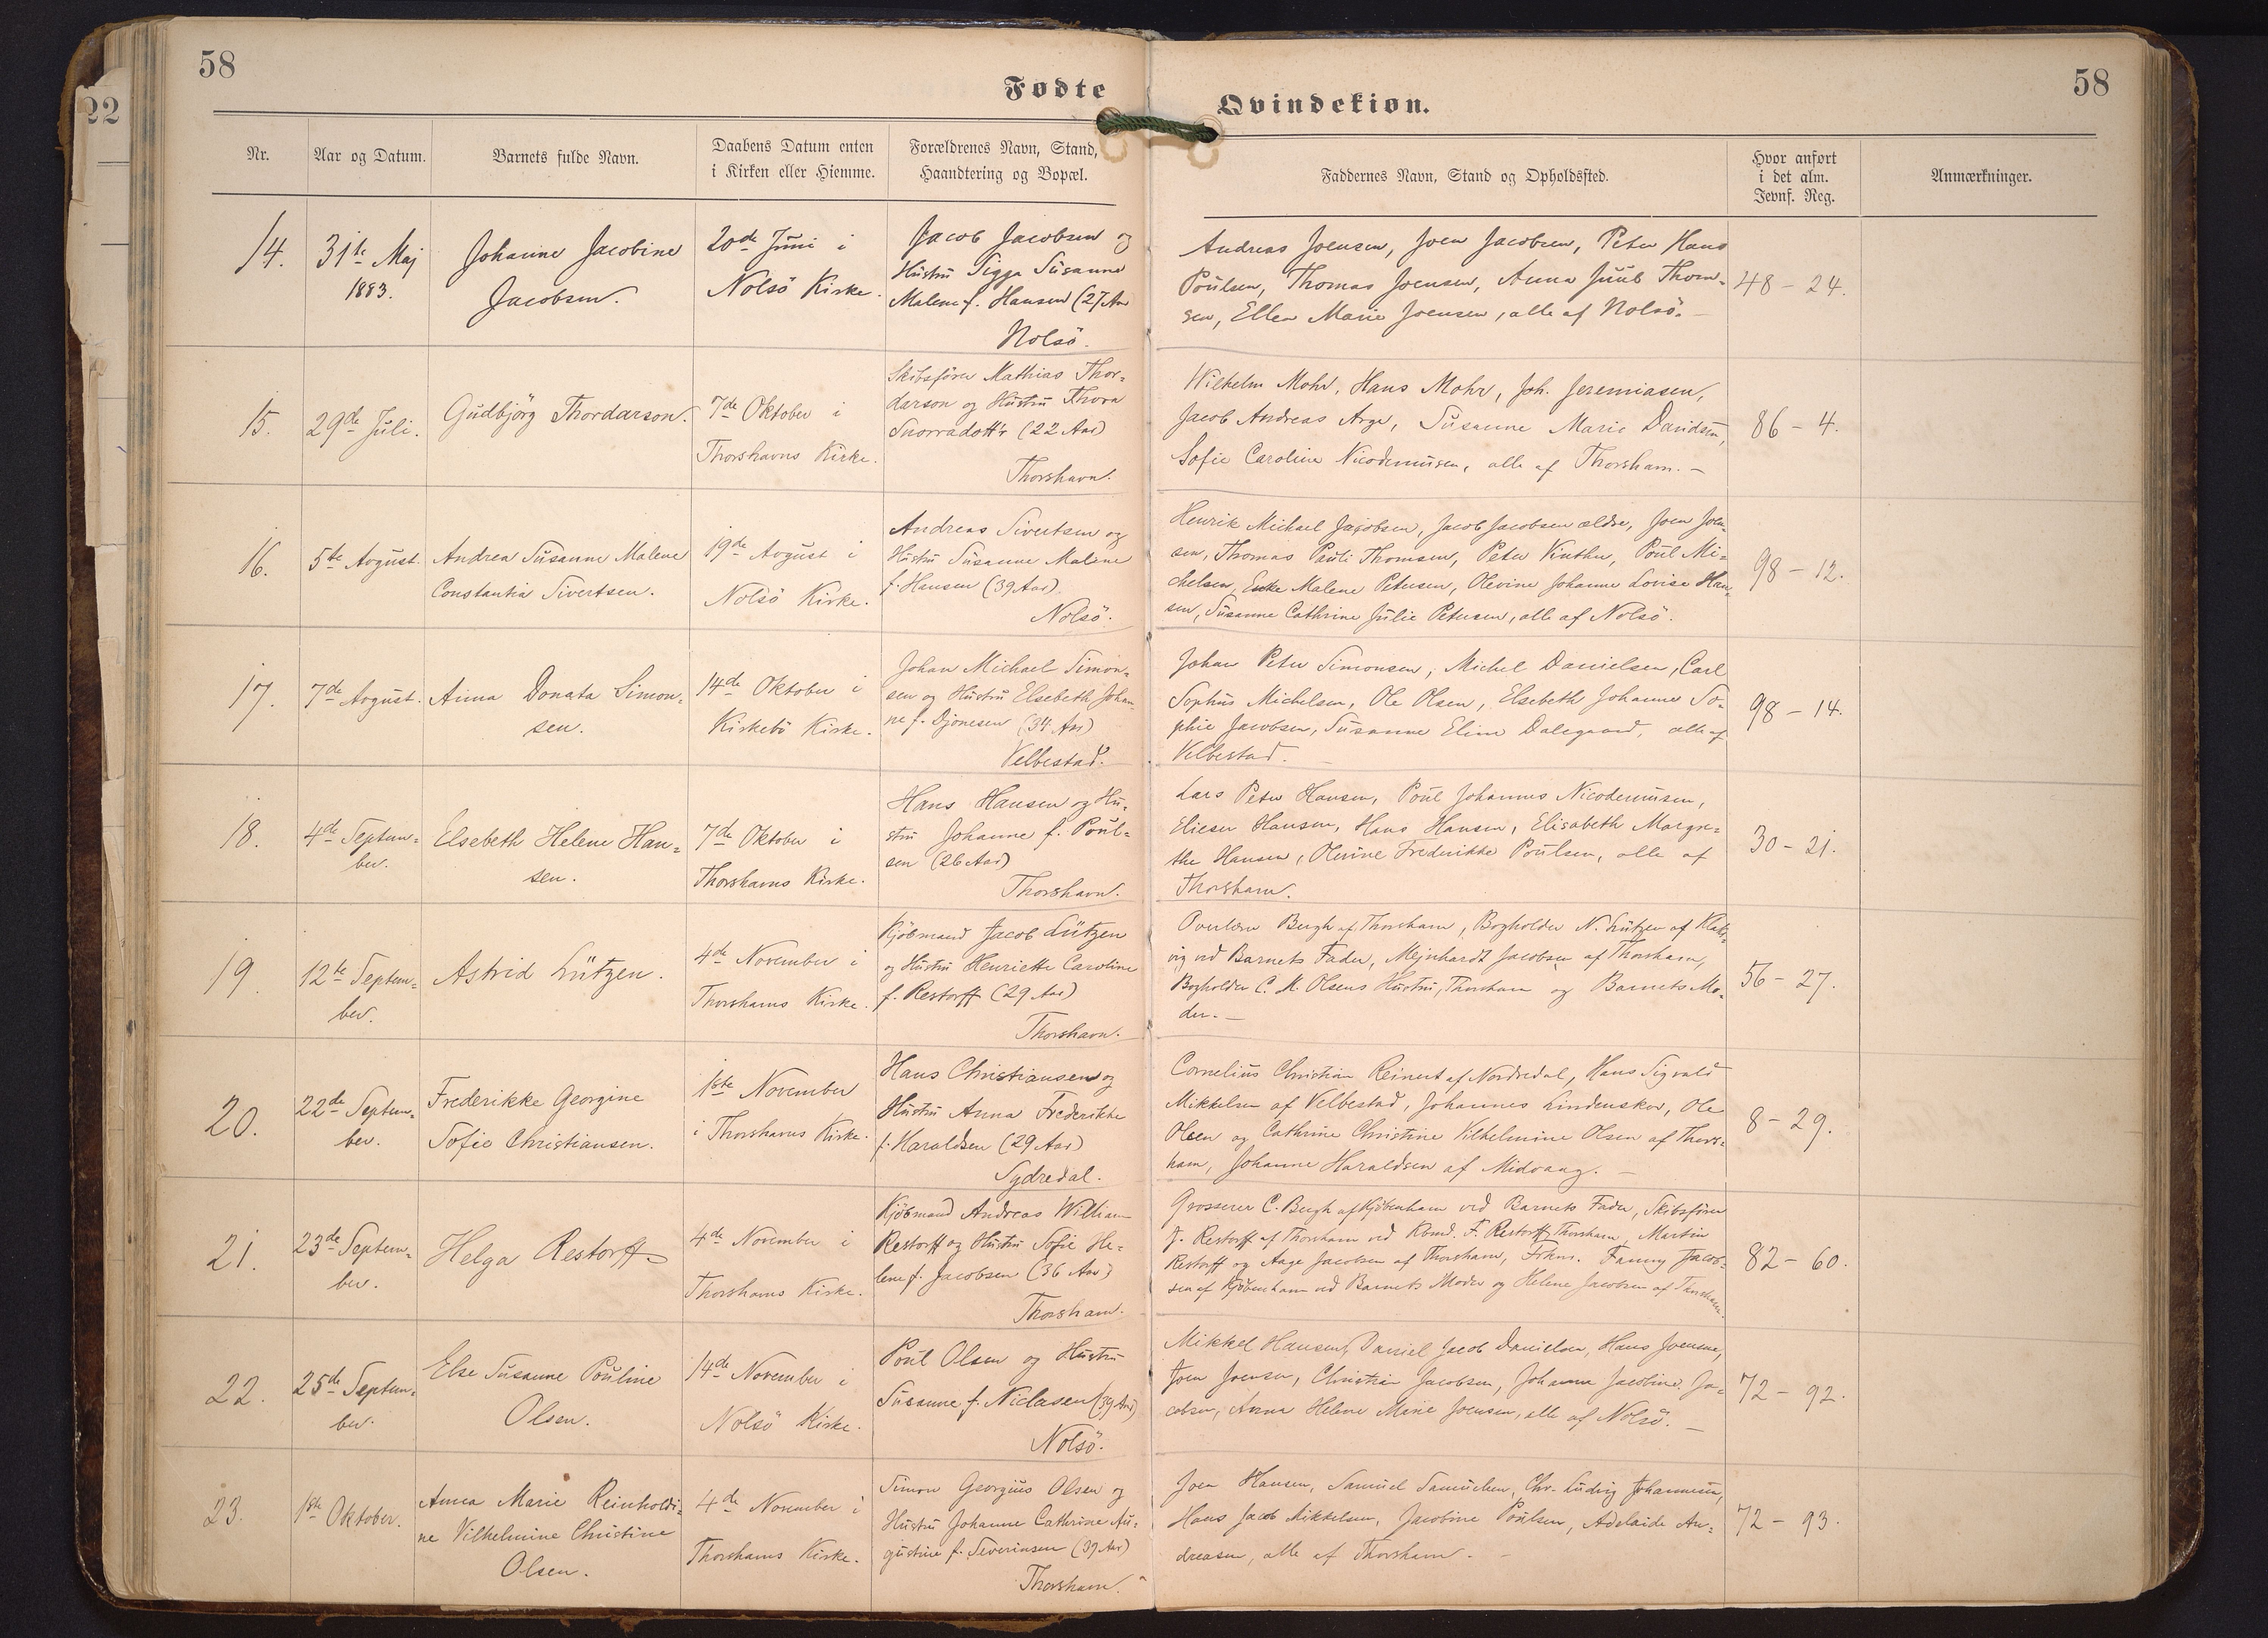 58
58
22
Fødte
Qvindekiøn.
Nr.
Aar og Datum.
Barnets fulde Navn.
Daabens Datum enten
i Kirken eller Hiemme.
Forældrenes Navn, Stand,
Haandtering og Bopæl.
Faddernes Navn, Stand og Opholdssted.
Hvor anført
i det alm.
Jevnf. Reg.
Anmærkninger.
14.
31te Maj
1883.
Johanne Jacobine
Jacobsen.
20de Juni i
Nolsö Kirke.
Jacob Jacobsen og
Hustru Sigga Susanne
Malene f. Hansen (27 Aar
Nolsö.
Andreas Joensen, Joen Jacobsen, Peter Hans
Poulsen, Thomas Joensen, Anna Juul Thom-
sen, Ellen Marie Joensen, alle af Nolsö. —
48 - 24.
15.
29de Juli.
Gudbjörg Thordarson.
7de Oktober i
Thorshavns Kirke.
Skibsförer Mathias Thor-
darson og Hustru Thora
Snorradottr (22 Aar)
Thorshavn.
Wilhelm Mohr, Hans Mohr, Joh. Jeremiasen,
Jacob Andreas Arge, Susanne Marie Davidsen,
Sofie Caroline Nicodemussen, alle af Thorshavn. —
86 - 4.
16.
5te Avgust.
Andrea Susanne Malene
Constantia Sivertsen.
19de Avgust i
Nolsö Kirke.
Andreas Sivertsen og
Hustru Susanne Malene
f. Hansen (39 Aar).
Nolsö.
Henrik Michael Jacobsen, Jacob Jacobsen ældre, Joen Joen-
sen, Thomas Pauli Thomsen, Peter Vinther, Poul Mi-
chelsen, Malene Petersen, Olevine Johanne Lovise Han-
sen, Susanne Cathrine Julie Petersen, alle af Nolsö.
98 - 12.
17.
7de Avgust.
Anna Donata Simon-
sen.
14de Oktober i
Kirkebö Kirke.
Johan Michael Simon-
sen og Hustru Elsebeth Johan-
ne f. Djonesen (34 Aar)
Velbestad.
Johan Peter Simonsen, Michel Danielsen, Carl
Sophus Michelsen, Ole Olsen, Elsebeth Johanne So-
phie Jacobsen, Susanne Eline Dalsgaard, alle af
Velbestad. —
98 - 14.
18.
4de Septem-
ber.
Elsebeth Helene Han-
sen.
7de Oktober i
Thorshavns Kirke.
Hans Hansen og Hu-
stru Johanne f. Poul-
sen (26 Aar)
Thorshavn.
Lars Peter Hansen, Poul Johannes Nicodemussen,
Elieser Hansen, Hans Hansen, Elisabeth Margre-
the Hansen, Olevine Frederikke Poulsen, alle af
Thorshavn.
30 - 21.
19.
12te Septem-
ber.
Astrid Lützen.
4de November i
Thorshavns Kirke.
Kjöbmand Jacob Lützen
og Hustru Henriette Caroline
f. Restorff (29 Aar)
Thorshavn.
Overlærer Bergh af Thorshavn, Bogholder N. Lützen af Klaks-
vig ved Barnets Fader, Mejnhardt Jacobsen af Thorshavn,
Bogholder C. M. Olsens Hustru, Thorshavn og Barnets Mo-
der. —
56 - 27.
20.
22de Septem-
ber.
Frederikke Georgine
Sofie Christiansen.
1ste November
i Thorshavns Kirke.
Hans Christiansen og
Hustru Anna Frederikke
f. Haraldsen (29 Aar)
Sydredal.
Cornelius Christian Reinert af Nordredal, Hans Sigvald
Mikkelsen af Velbestad, Johannes Lindenskov, Ole
Olsen og Cathrine Christine Vilhelmine Olsen af Thors-
havn, Johanne Haraldsen af Midvaag. —
8 - 29.
21.
23de Septem-
ber.
Helga Restorff
4de November i
Thorshavns Kirke.
Kjöbmand Andreas William
Restorff og Hustru Sofie He-
lene f. Jacobsen (36 Aar)
Thorshavn.
Grosserer C. Bergh af Kjöbenhavn ved Barnets Fader, Skibsförer
J. Restorff af Thorshavn ved Kbmd. F. Restorff Thorshavn, Martin
Restorff og Aage Jacobsen af Thorshavn, Frkn. Fanny Jacob-
sen af Kjöbenhavn ved Barnets Moder og Helene Jacobsen af Thorshavn.
82 - 60.
22.
25de Septem-
ber.
Else Susanne Pouline
Olsen.
14de November i
Nolsö Kirke.
Poul Olsen og Hustru
Susanne f. Niclasen (39 Aar)
Nolsö.
Mikkel Hansen, Daniel Jacob Danielsen, Hans Joensen,
Joen Joensen, Christian Jacobsen, Johanne Jacobine Ja-
cobsen, Anna Helene Marie Joensen, alle af Nolsö. —
72 - 92.
23.
1ste Oktober.
Anna Marie Reinholdi-
ne Vilhelmine Christine
Olsen.
4de November i
Thorshavns Kirke.
Simon Georgius Olsen og
Hustru Johanne Cathrine Au-
gustine f. Severinsen (39 Aar)
Thorshavn.
Joen Hansen, Samuel Samuelsen, Chr. Ludvig Johannesen,
Hans Jacob Mikkelsen, Jacobine Poulsen, Adelaide An-
dreasen, alle af Thorshavn. -
72 - 93.